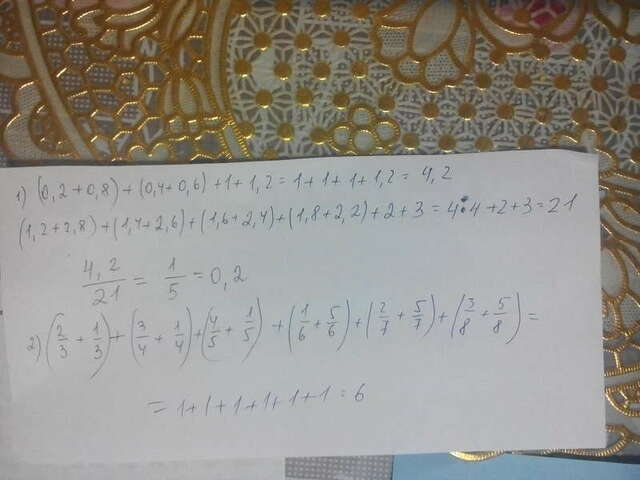 1) (0,2+0,8)+(0,4+0,6)+1+1,2=1+1+1+1,2=4,2
(1,2+2,8)+(1,4+2,6)+(1,6+2,4)+(1,8+2,2)+2+3=4·4+2+3=21
4,2/21=1/5=0,2
2) (2/3+1/3)+(3/4+1/4)+(4/5+1/5)+(1/6+5/6)+(2/7+5/7)+(3/8+5/8)=
=1+1+1+1+1+1=6